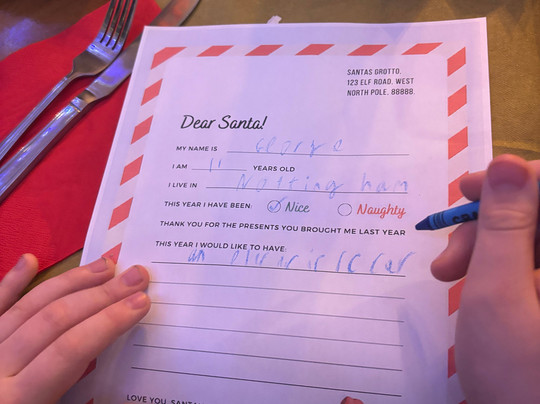 SANTAS GROTTO,
123 ELF ROAD, WEST
NORTH POLE, 88888.
Dear Santa!
MY NAME IS George
I AM 11 YEARS OLD
I LIVE IN Notting ham
THIS YEAR I HAVE BEEN: Nice Naughty
THANK YOU FOR THE PRESENTS YOU BROUGHT ME LAST YEAR
THIS YEAR I WOULD LIKE TO HAVE:
an
LOVE YOU, SANTA